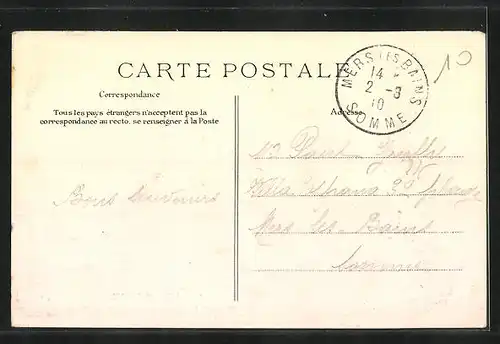 CARTE POSTALE
Correspondance
Tous les pays étrangers n'acceptent pas la
correspondance au recto. se renseigner à la Poste
Adresse
MERS LES BAINS
14
2 - 3
10
SOMME
10
Bons Souvenirs
Mers les Bains
Somme